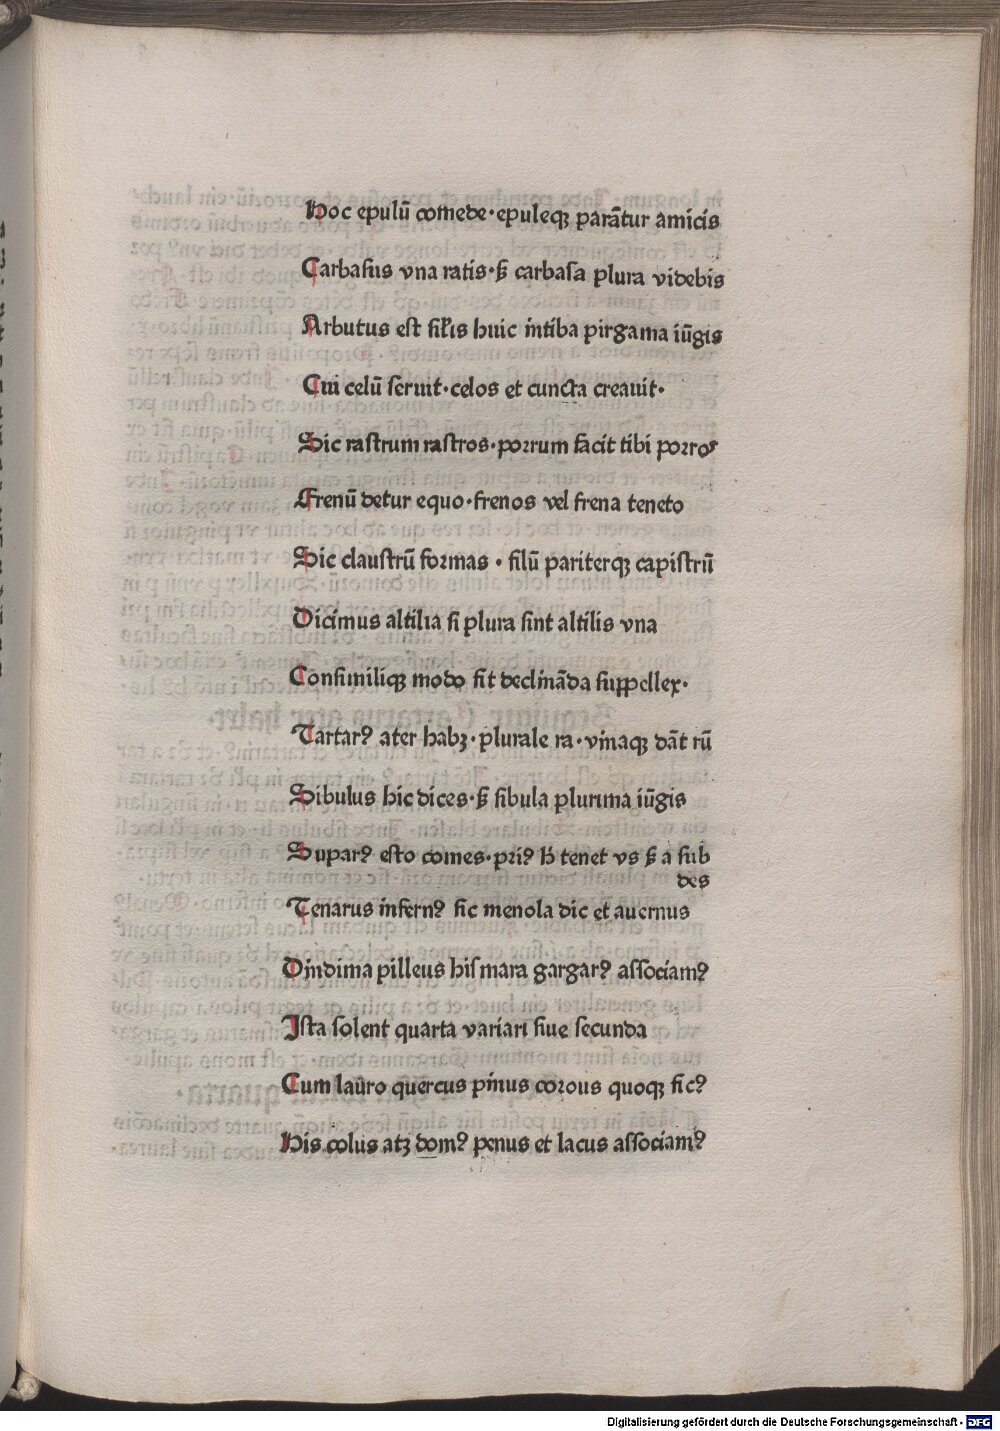 Hoc epulū comede·epuleqꝫ parātur amicis
Carbasus vna ratis·sꝫ carbasa plura videbis
Arbutus est silis huic intiba pirgama iūgis
Cui celū seruit·celos et cuncta creauit·
Sic rastrum rastros·porrum facit tibi porros
Frenū detur equo·frenos vel frena teneto
Sic claustrū formas·filū pariterqꝫ capistrū
Dicimus altilia si plura sint altilis vna
Consimiliqꝫ modo fit declināda suppellex·
Tartarꝰ ater habꝫ·plurale ra·vinaqꝫ dāt rū
Sibulus hic dices·sꝫ sibula plurima iūgis
Suparꝰ esto comes·priꝰ h̄ tenet vs sꝫ a sub
des
Tenarus infernꝰ sic menola dic et auernus
Dindima pilleus his mara gargarꝰ associamꝰ
Ista solent quarta variari siue secunda
Cum lauro quercus pinus cornus quoqꝫ ficꝰ
His colus atqꝫ domꝰ penus et lacus associamꝰ
Digitalisierung gefördert durch die Deutsche Forschungsgemeinschaft - DFG